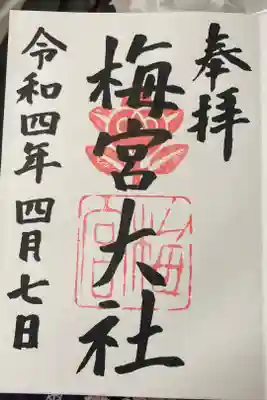 奉拝
梅宮大社
梅宮
令和四年四月七日